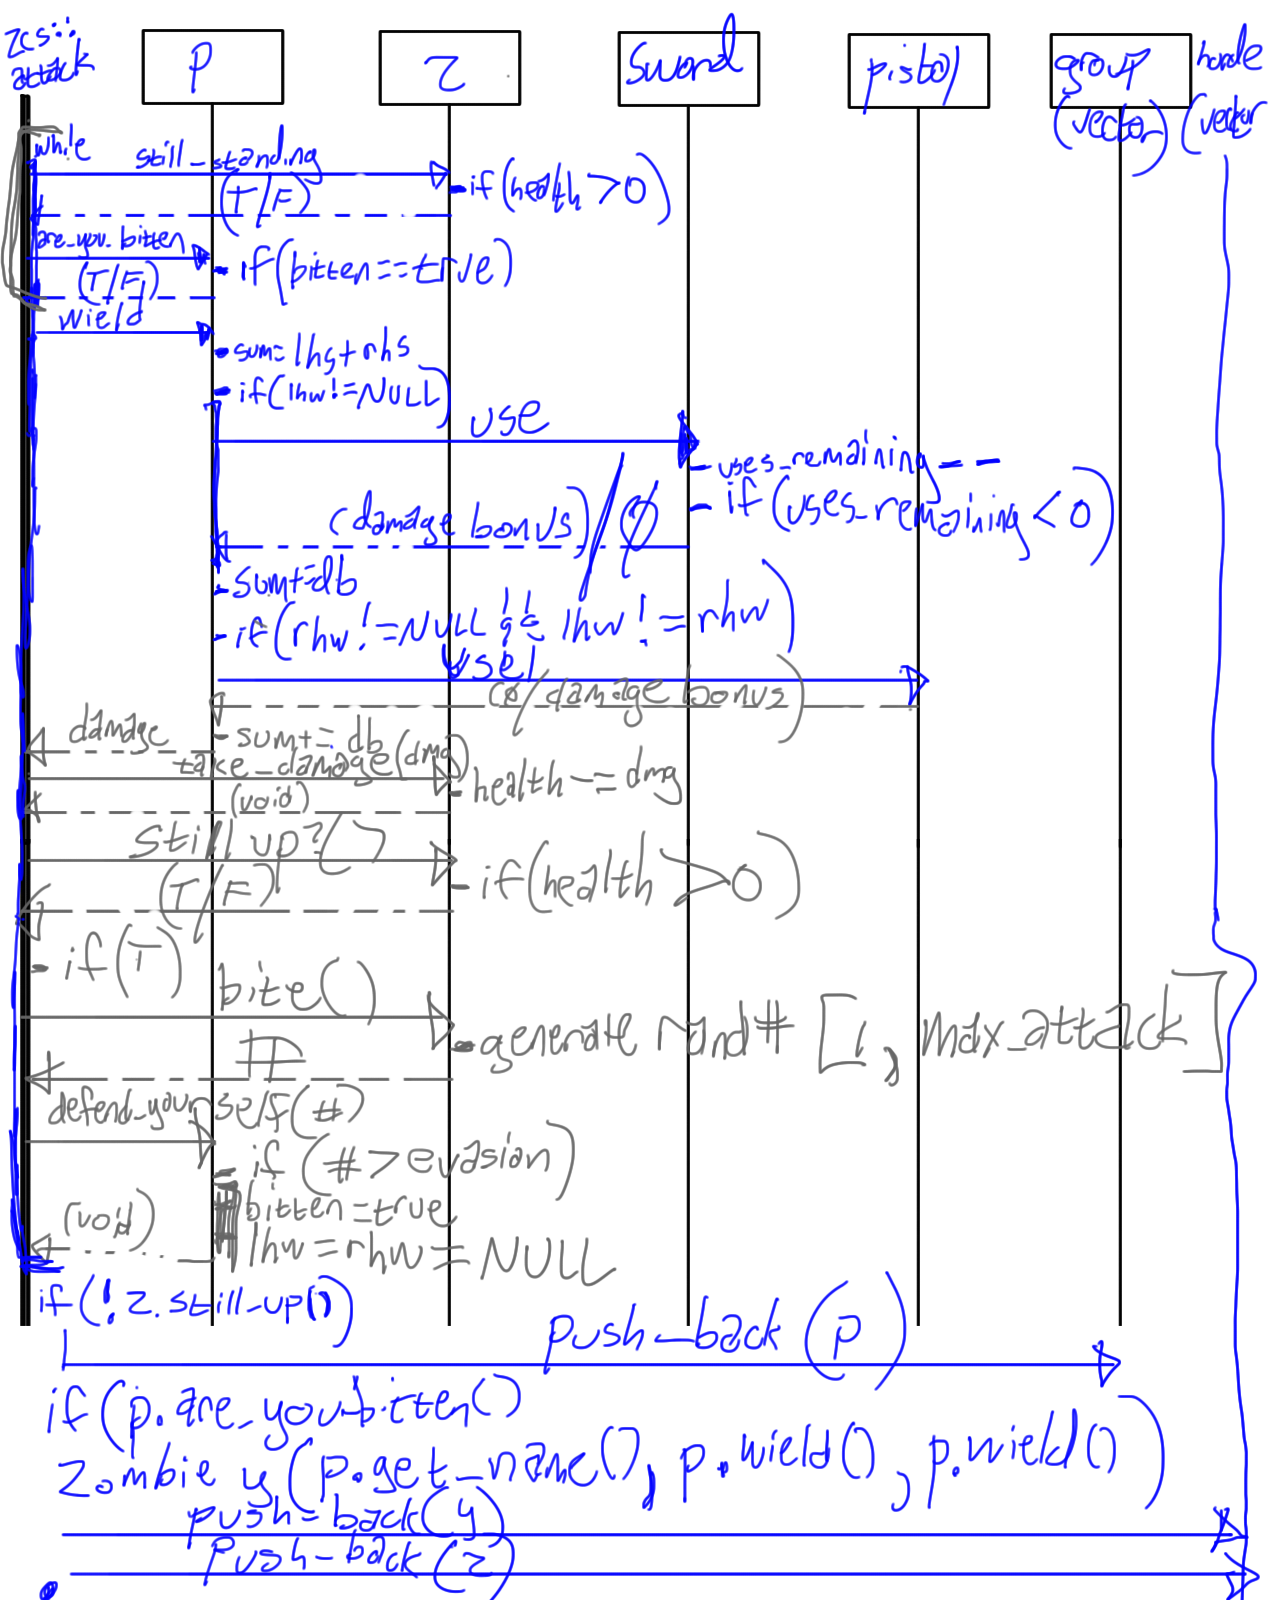 zcs::
attack
P
Z
Sword
pistol
group
(vector)
horde
(vector
while
still_standing
(T/F)
-if(health>0)
are_you_bitten
(T/F)
- if(bitten==true)
wield
- sum=lhs+rhs
- if(lhw!=NULL)
use
- uses_remaining--
- if(uses_remaining<0)
(damage bonus)/0
- sum+=db
- if(rhw!=NULL && lhw!=rhw)
use
(0/damage bonus)
damage
- sum+=db
take_damage(dmg)
- health-=dmg
(void)
still up?()
(T/F)
- if(health>0)
- if(T)
bite()
- generate rand# [1, max_attack]
#
defend_yourself(#)
- if (#>evasion)
bitten=true
lhw=rhw=NULL
(void)
if(!z.still_up())
push_back(p)
if(p.are_you_bitten()
Zombie y(p.get_name(), p.wield(), p.wield())
push_back(y)
push_back(z)